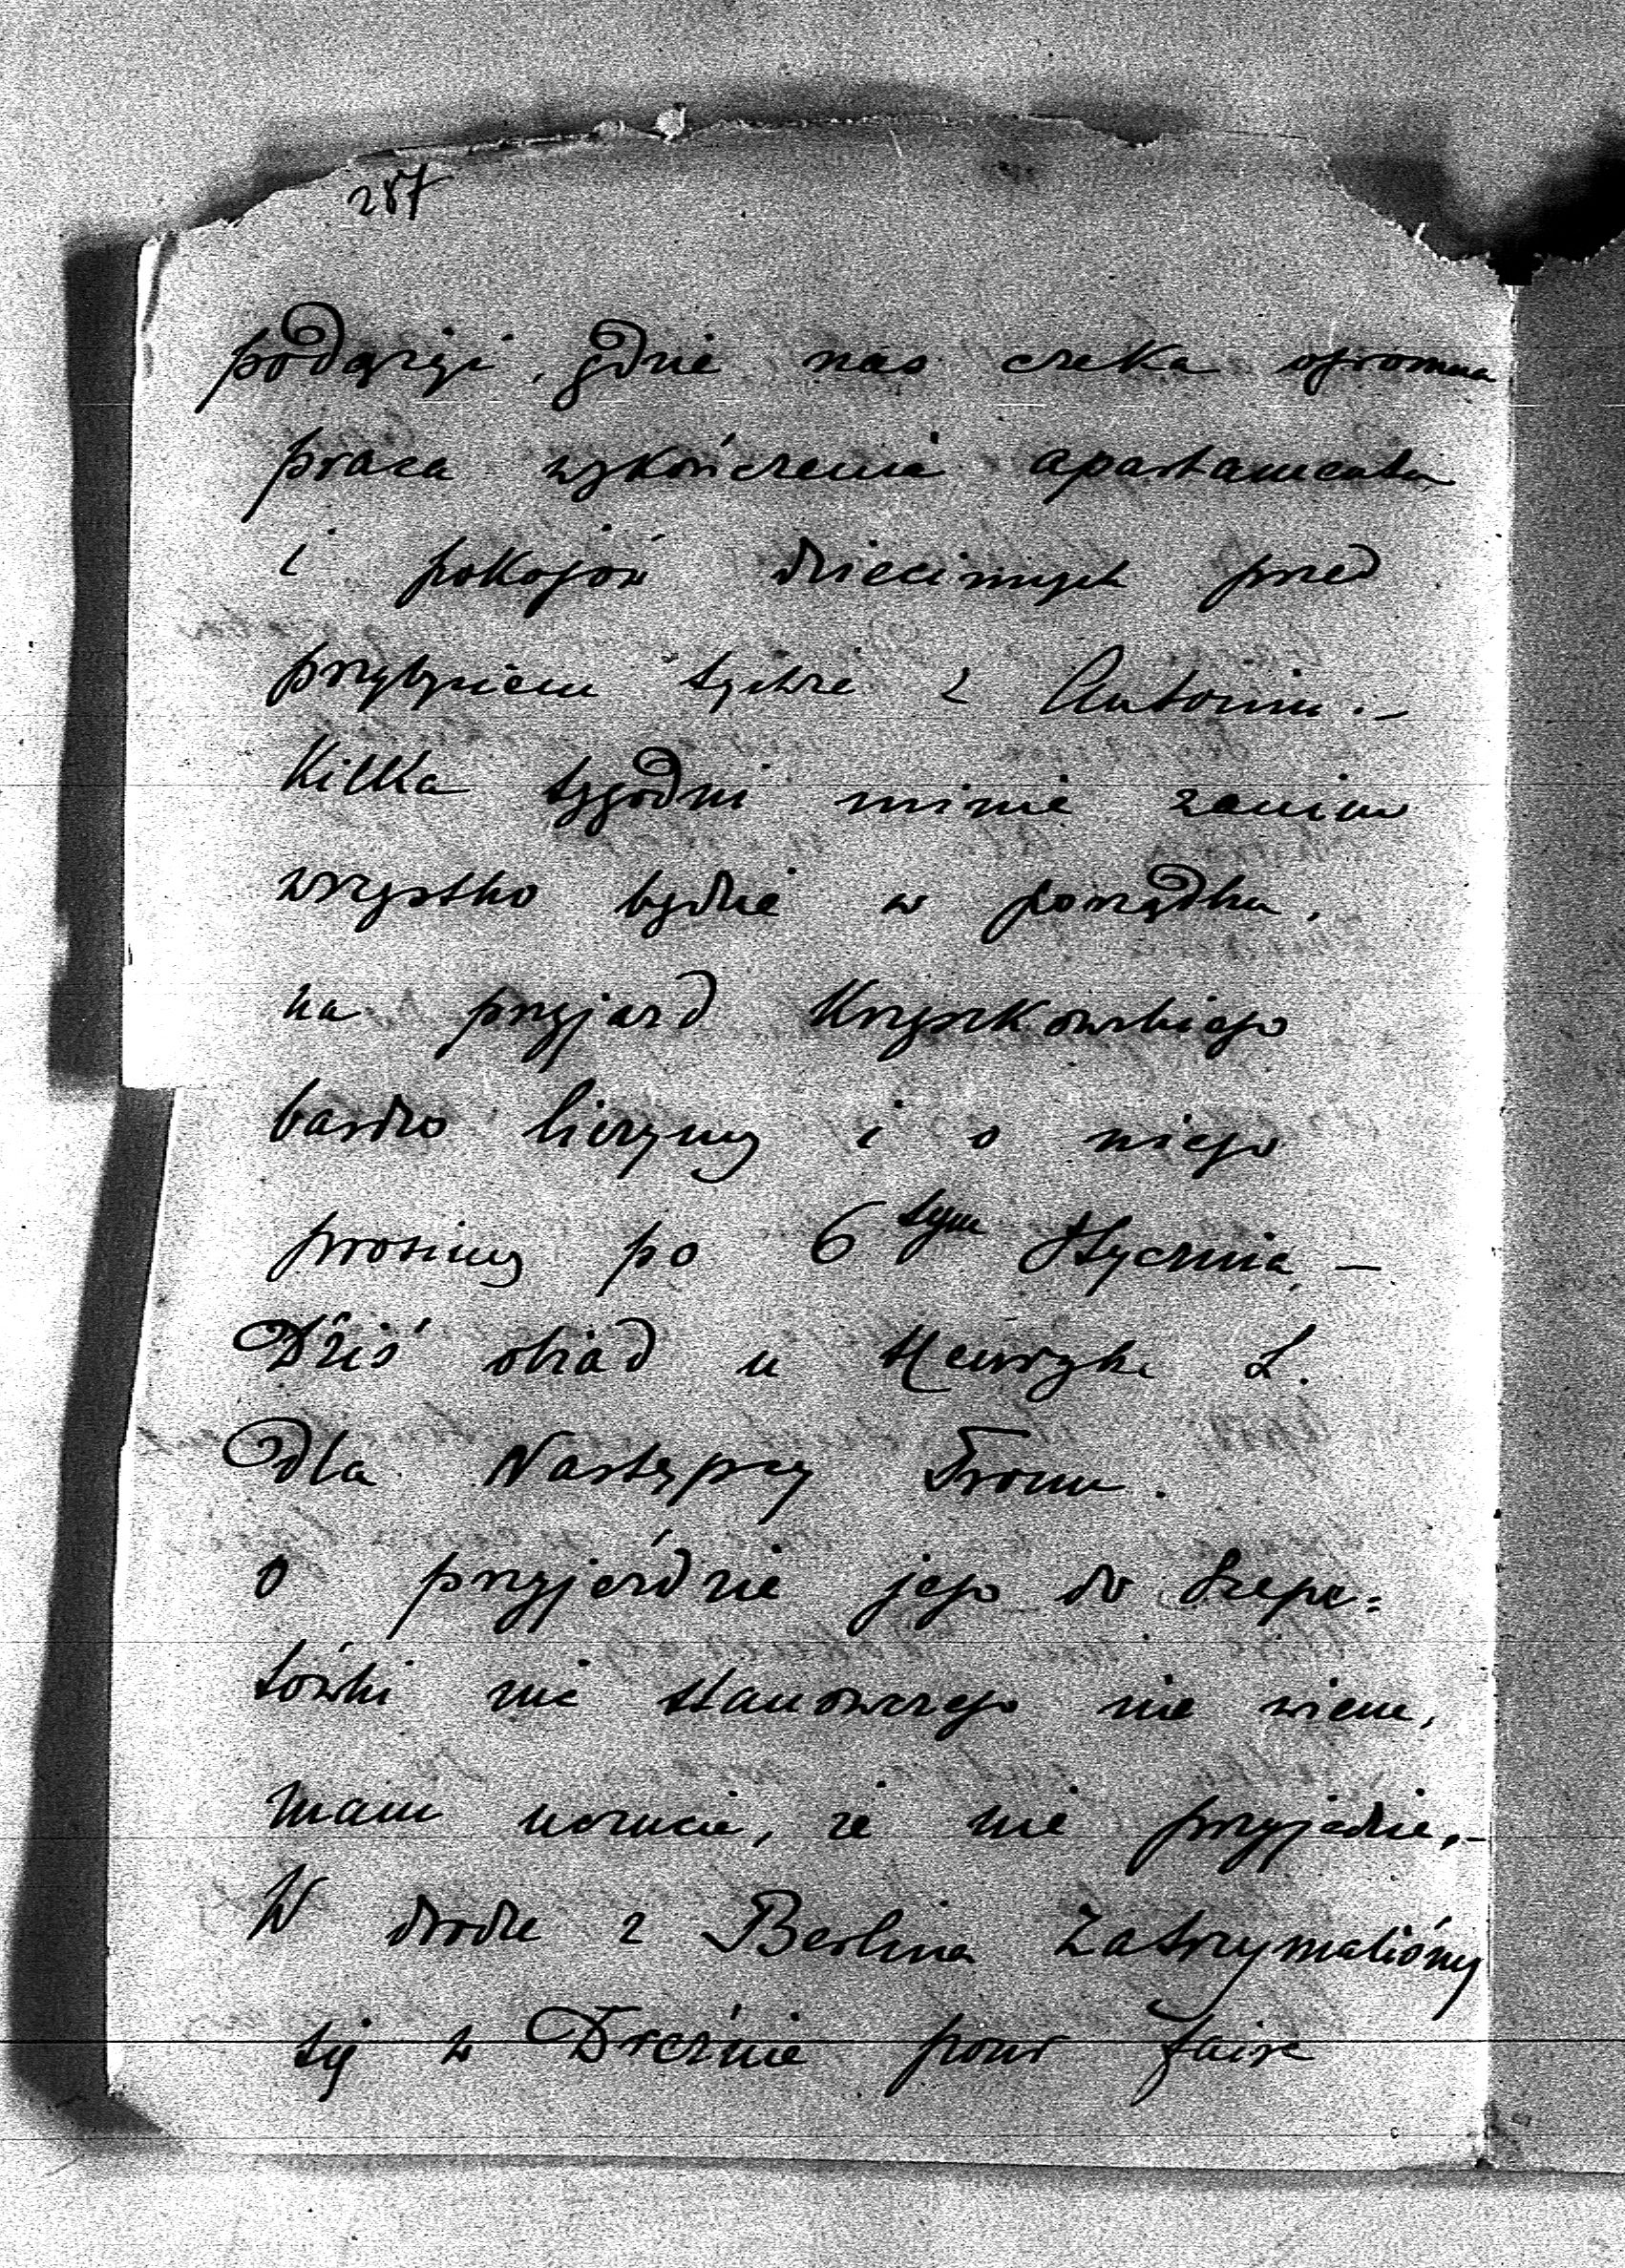 287
podąrzyć, gdzie nas czeka ogromna
praca wykończenia apartamentu
i pokojów dziecinnych przed
przybyciem tychże z Antonin. —
Kilka tygodni minie zanim
wszystko będzie w porządku.
na przyjazd Kryszkowskiego
bardzo liczymy i o niego
prosimy po 6 tym Stycznia, —
Dziś obiad u Henryka L.
dla Następcy Tronu.
o przyjeździe jego do Szepe=
tówki nic stanowczego nie wiem,
mam uczucie, że nie przyjedzie, —
W drodze z Berlina zatrzymaliśmy
się w Dreźnie pour faire